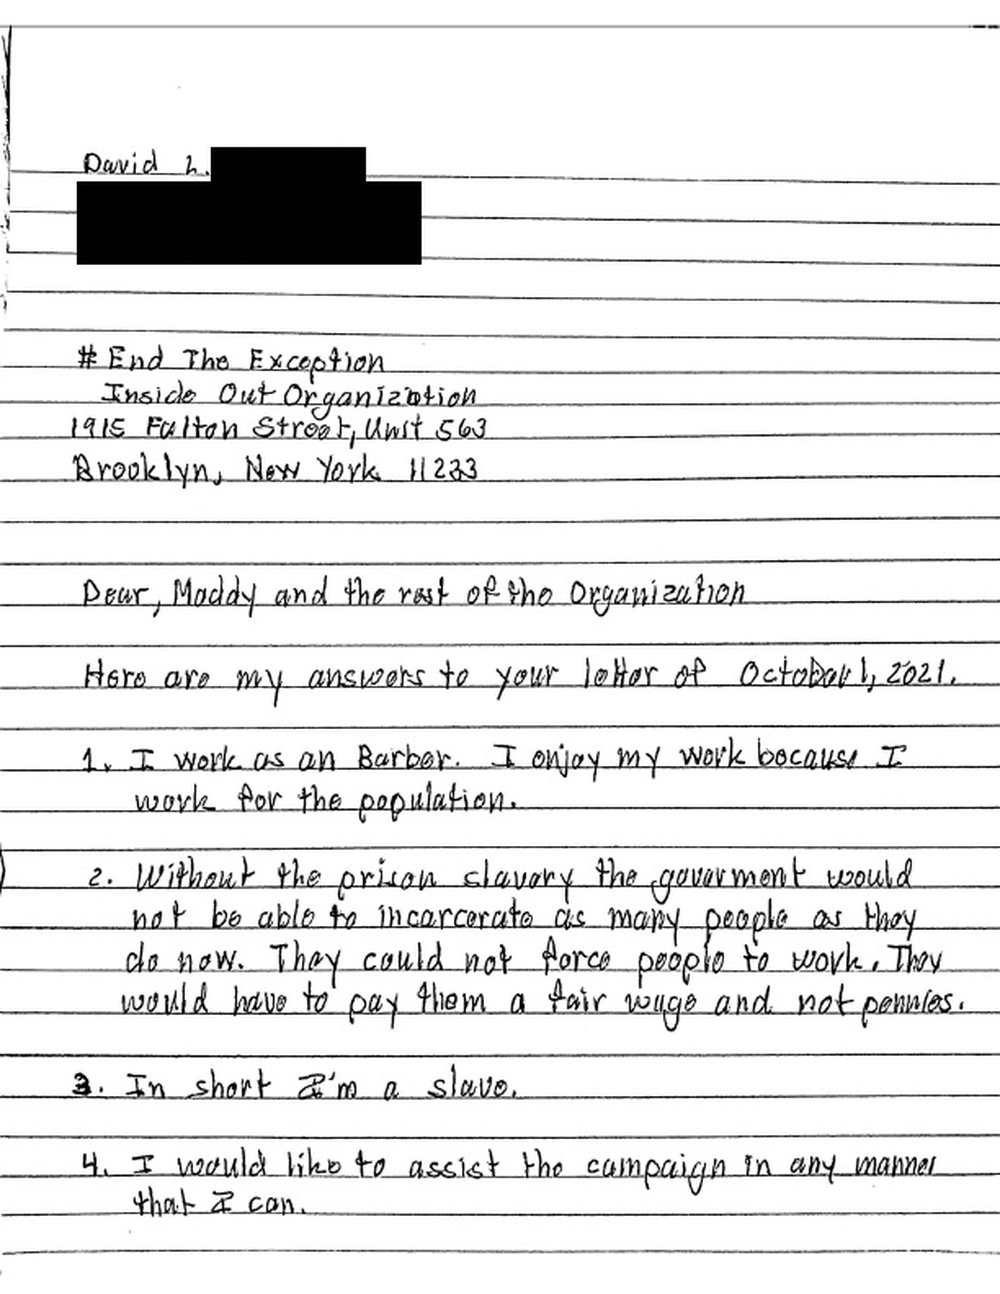 David L.
# End The Exception
Inside Out Organization
1915 Fulton Street, Unit 563
Brooklyn, New York 11233
Dear, Maddy and the rest of the Organization
Here are my answers to your letter of October 1, 2021.
1. I work as an Barber. I enjoy my work because I
work for the population.
2. Without the prison slavery the goverment would
not be able to incarcerate as many people as they
do now. They could not force people to work. They
would have to pay them a fair wage and not pennies.
3. In short I'm a slave.
4. I would like to assist the campaign in any manner
that I can.